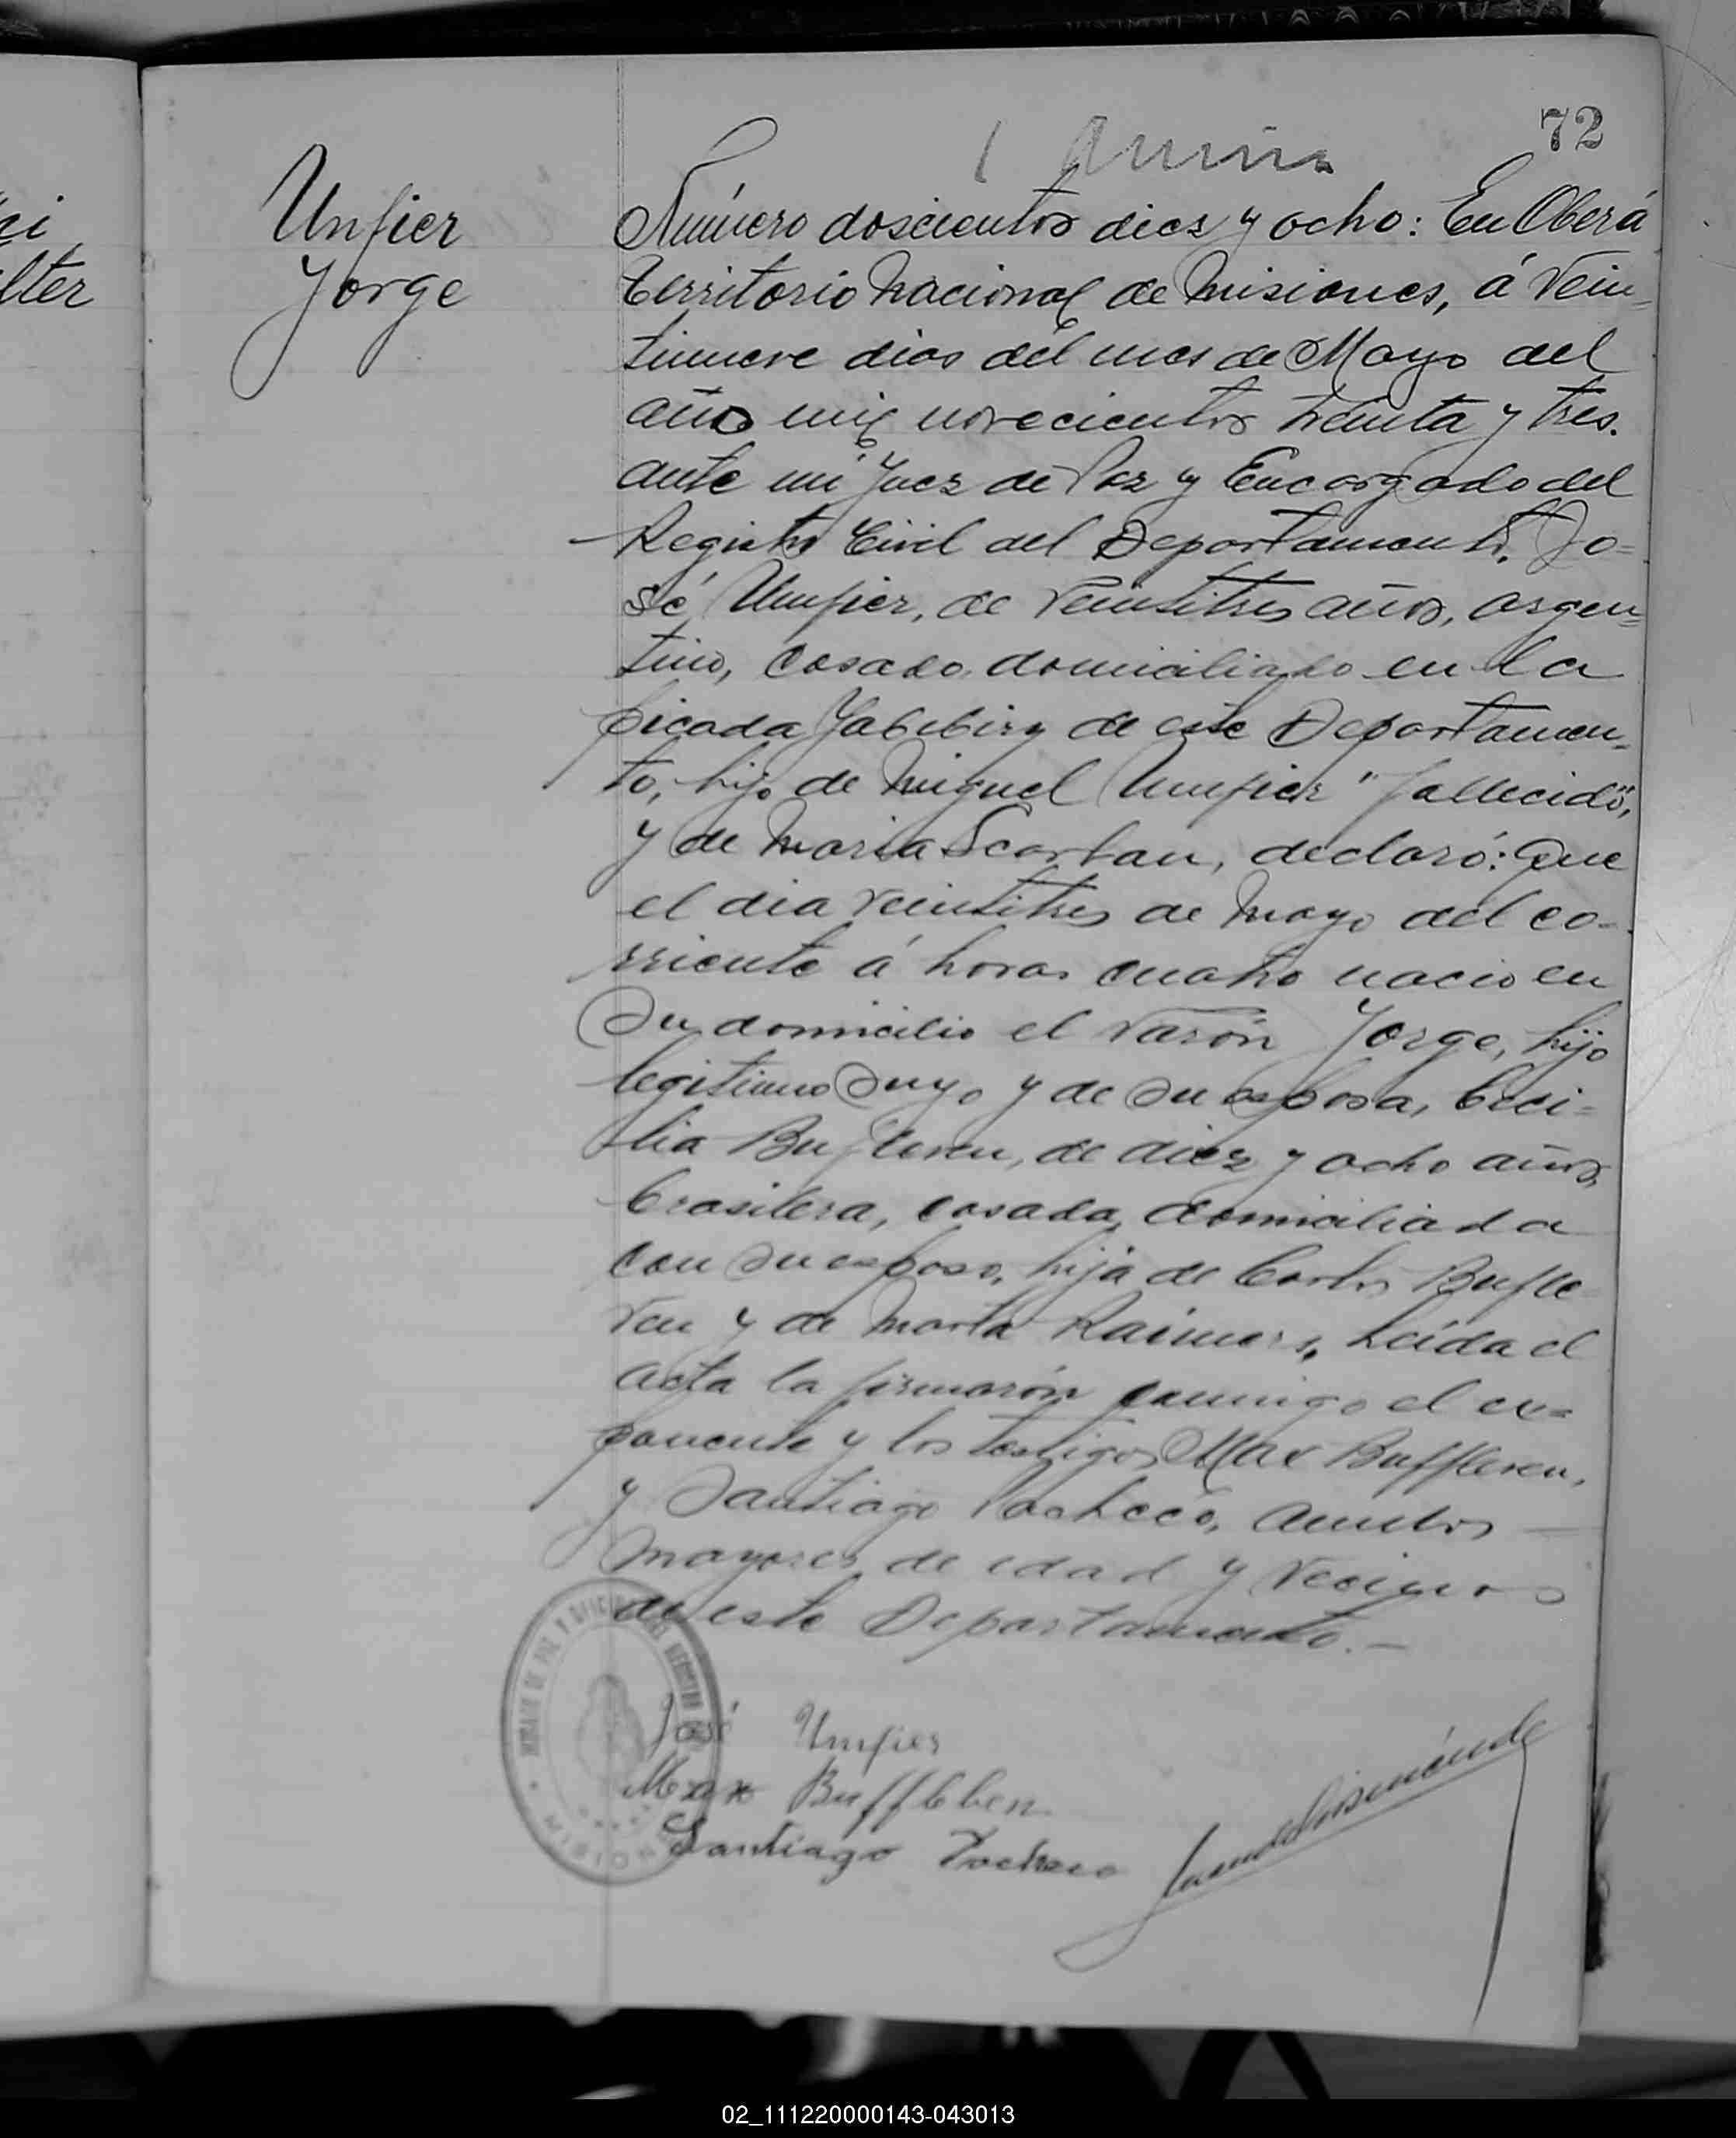 72
Unfier
Jorge
Número doscientos diez y ocho: En Oberá
territorio Nacional de Misiones, á vein=
tinueve dias del mes de Mayo del
año mil novecientos treinta y tres.
ante mi Juez de Paz y Encargado del
Registro Civil del Departamento. Jo=
sé Umfier, de veintitres años, argen=
tino, casado domiciliado en la
picada Yabebiry de este Departamen=
to, hijo de Miguel Umfier "fallecido",
y de Maria Scorban, declaró: Que
el dia veintitres de Mayo del co=
rriente á horas cuatro nacio en
su domicilio el varón Jorge, hijo
legitimo suyo y de su esposa, Ceci=
lia Bufleven, de diez y ocho años,
brasilera, casada, domiciliada
con su esposo, hija de Carlos Bufle=
ven y de Marta Raimers, Leida el
acta la firmarón conmigo el ex=
ponente y los testigos Max Buffleven,
y Santiago Pacheco, ambos
mayores de edad y vecinos
de este Departamento.—
José Umfier
Max Buffleben.
Santiago Pacheco
MISIONES
ei
lter
02_111220000143-043013